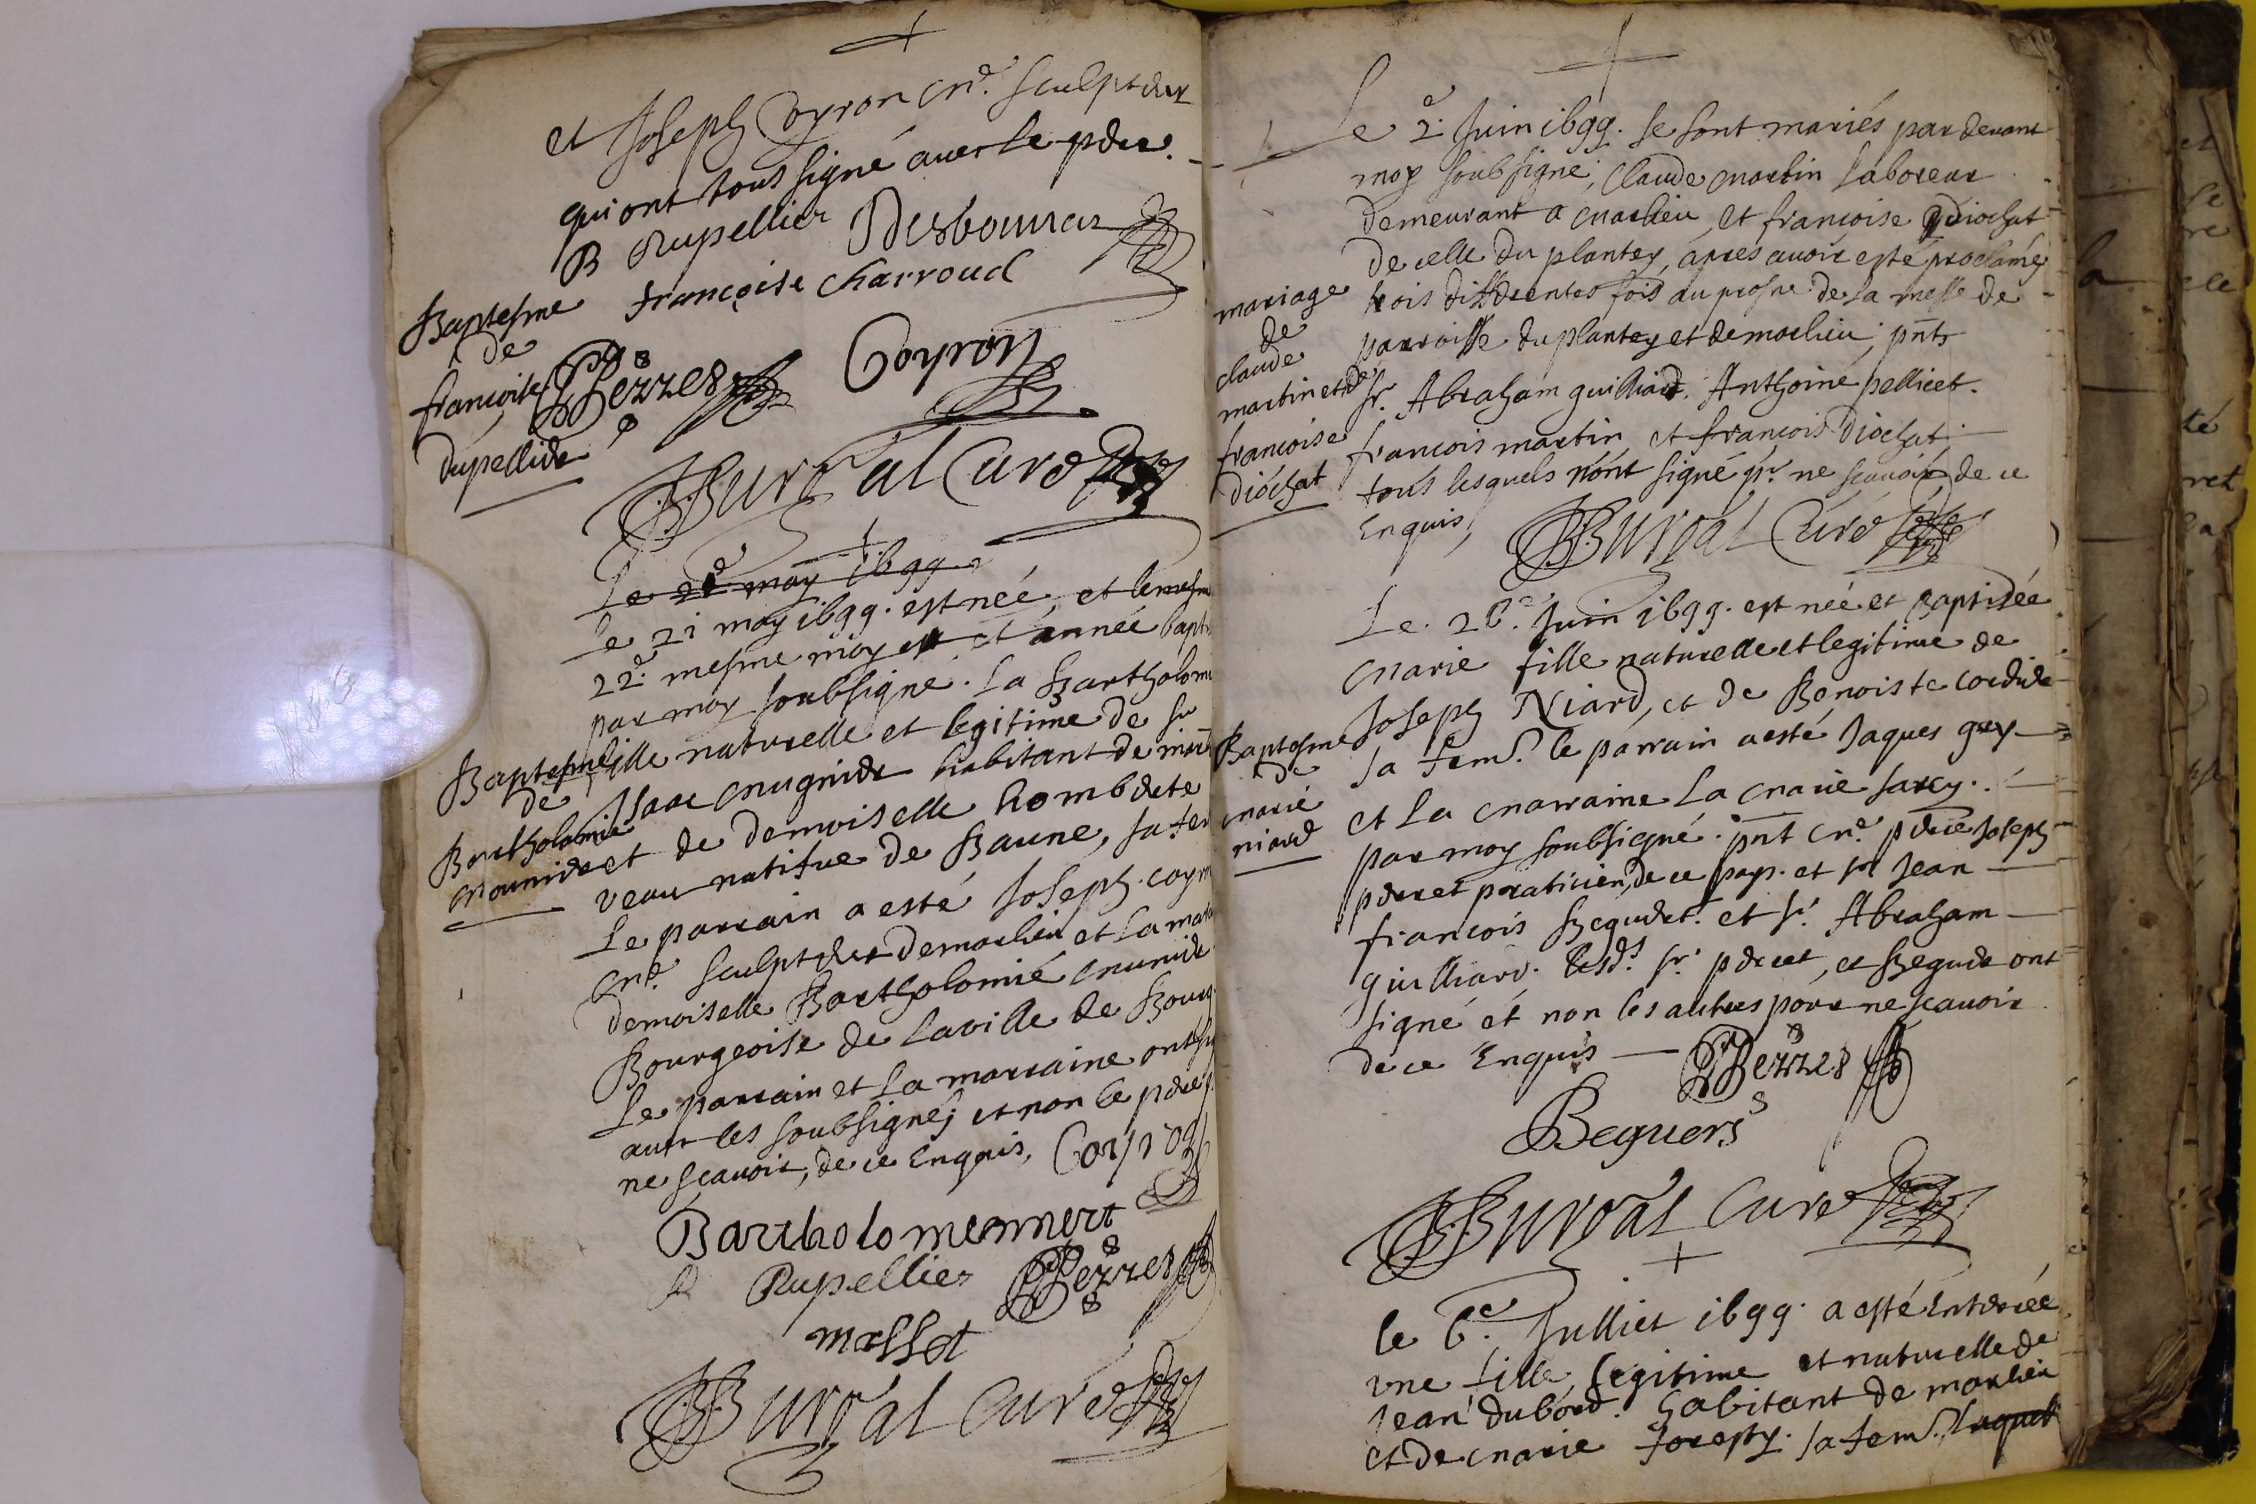 et Joseph Coyron mre. sculpteur
qui ont tous signé avec le perre.
B Rupellier Desbourcez
françoise Charroud
Baptesme
de
françoise
dupellier
Perres Coyron
Bureal Curé
Le 22e may 1699.
le 21 may 1699. est née, et le mesme
22e. mesme moy et et année bapt
par moy soubsigné. la Bartholom
fille naturelle et legitime de sr
Baptesme
de
Bartholomie
Mounier
Isaac Mugnier habitant de
et de demoiselle hombdete
veau natifue de Baune, sa fe
Le parrain a esté Joseph. coyr
mre. sculpteur de marlieu et la ma
demoiselle Bartholomie Munier
Bourgeoise de la ville de Bourg
Le parrain et la marraine ont
auec les soubsignés et non le pere
ne scauoir, de ce Enquis, Coyron
Bartholomemnert
B Rupellier Perres
massot
Bureal Curé
Le 2e. Juin 1699. se sont mariés par deuant
moy soubsigné, Claude Martin laboreur
demeurant a Marlieu, et francoise diochat
de celle du plantey, apres auoir esté proclamés
trois differentes fois au prosne de la messe de
parroisse du plantey et de marlieu, pnts
sr. Abraham guilliard. Anthoine pellicet.
francois martin, et francois diochat
tous lesquels n'ont signé pr. ne scauoir de ce
Enquis,
mariage
de
claude
martin et de
francoise
diochat
Bureal Curé
Le. 26e. Juin 1699. est née et Baptisée
Marie fille naturelle et legitime de
Joseph Niard, et de Benoiste cordier
sa fem. le parrain a esté Jaques guy
et la Marraine la Marie sarcy.
par moy soubsigné. pnt Mre. pierre Joseph
perret praticien, de ce pays. et sr Jean
francois Beguet. et sr. Abraham
guilliard. lesds. sr. perret, et Beguet ont
signé et non les autres pour ne scauoir
de ce Enquis
Baptesme
de
marie
niard
Perres
Beguers
Bureal Curé
le 6e. Julliet 1699. a esté Enterrée
vne fille legitime et naturelle de
Jean dubord. habitant de marlieu
et de Marie foresty. sa fem. laquel